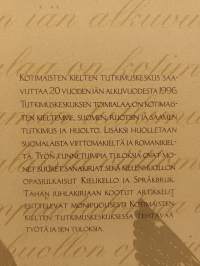 KOTIMAISTEN KIELTEN TUTKIMUSKESKUS SAA-
VUTTAA 20 VUODEN IÄN ALKUVUODESTA 1996.
TUTKIMUSKESKUKSEN TOIMIALAA ON KOTIMAIS-
TEN KIELTEMME, SUOMEN, RUOTSIN JA SAAMEN
TUTKIMUS JA HUOLTO. LISÄKSI HUOLLETAAN
SUOMALAISTA VIITTOMAKIELTÄ JA ROMANIKIEL-
TÄ. TYÖN TUNNETUIMPIA TULOKSIA OVAT MO-
NET SUURET SANAKIRJAT SEKÄ KIELENHUOLLON
OPASJULKAISUT KIELIKELLO JA SPRÅKBRUK.
TÄHÄN JUHLAKIRJAAN KOOTUT ARTIKKELIT
ESITTELEVÄT MONIPUOLISESTI KOTIMAISTEN
KIELTEN TUTKIMUSKESKUKSESSA TEHTÄVÄÄ
TYÖTÄ JA SEN TULOKSIA.